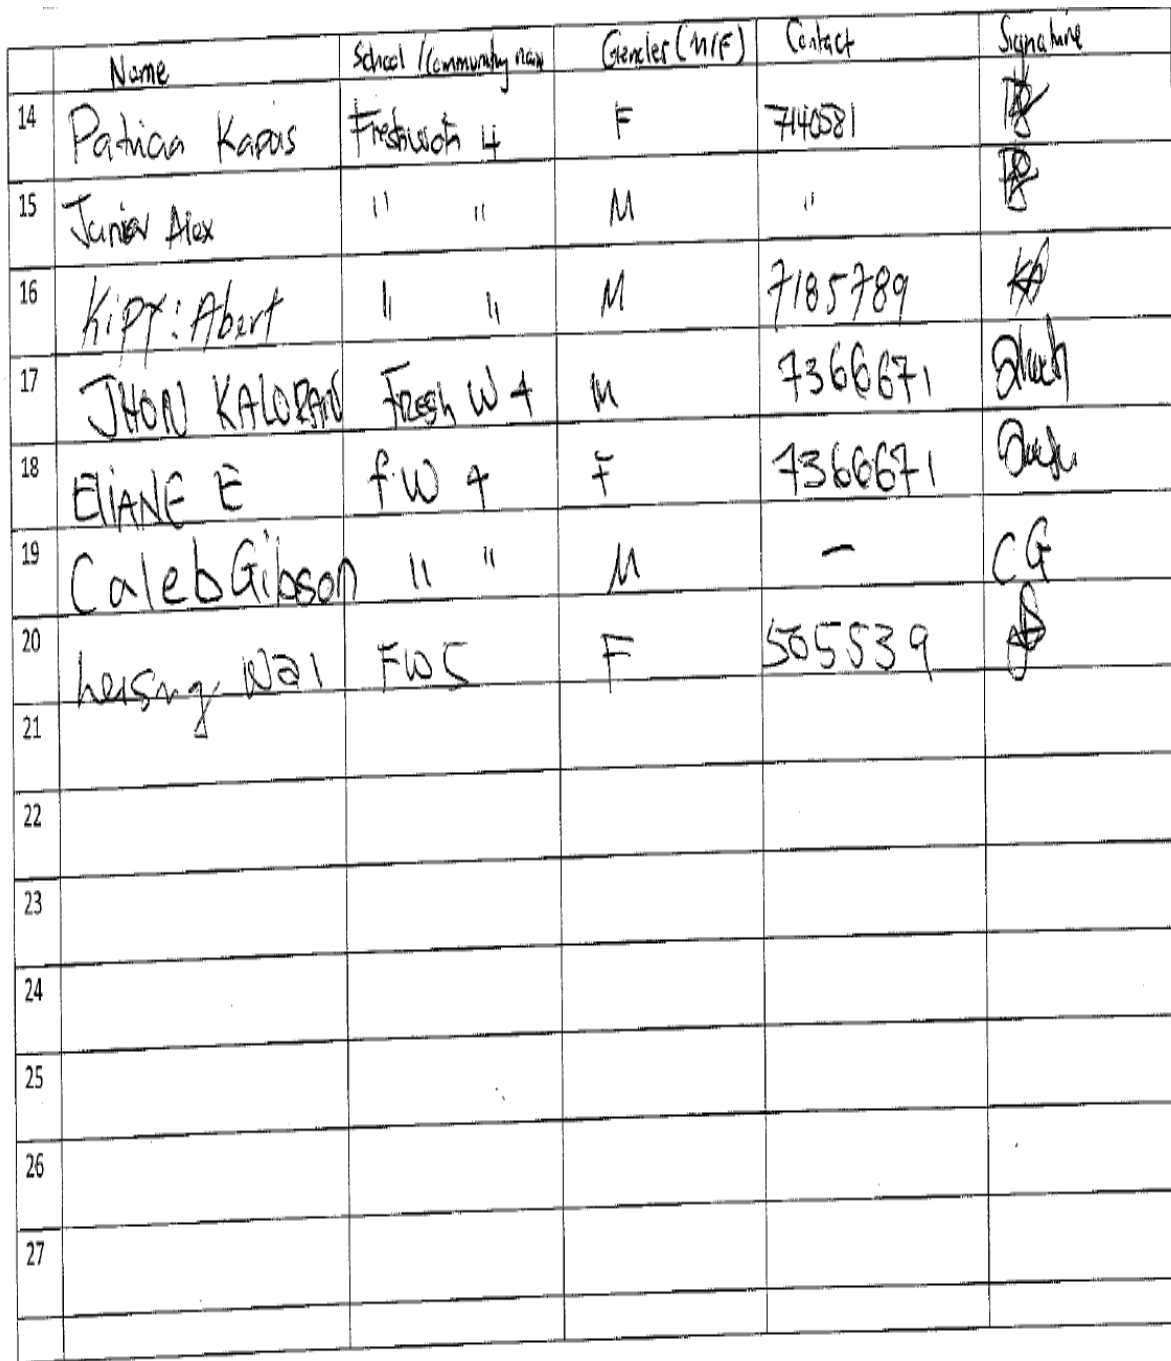 Name School / Community name Gender (M/F) Contact Signature
14 Patricia Kapas Freshwota 4 F 7140581
15 Junior Alex " " M "
16 Kipy: Abert " " M 7185789
17 JHON KALORAN Fresh W 4 M 7366671
18 EliANE E f.W 4 F 7366671
19 Caleb Gibson " " M - CG
20 Nal FW5 F 505539
21
22
23
24
25
26
27